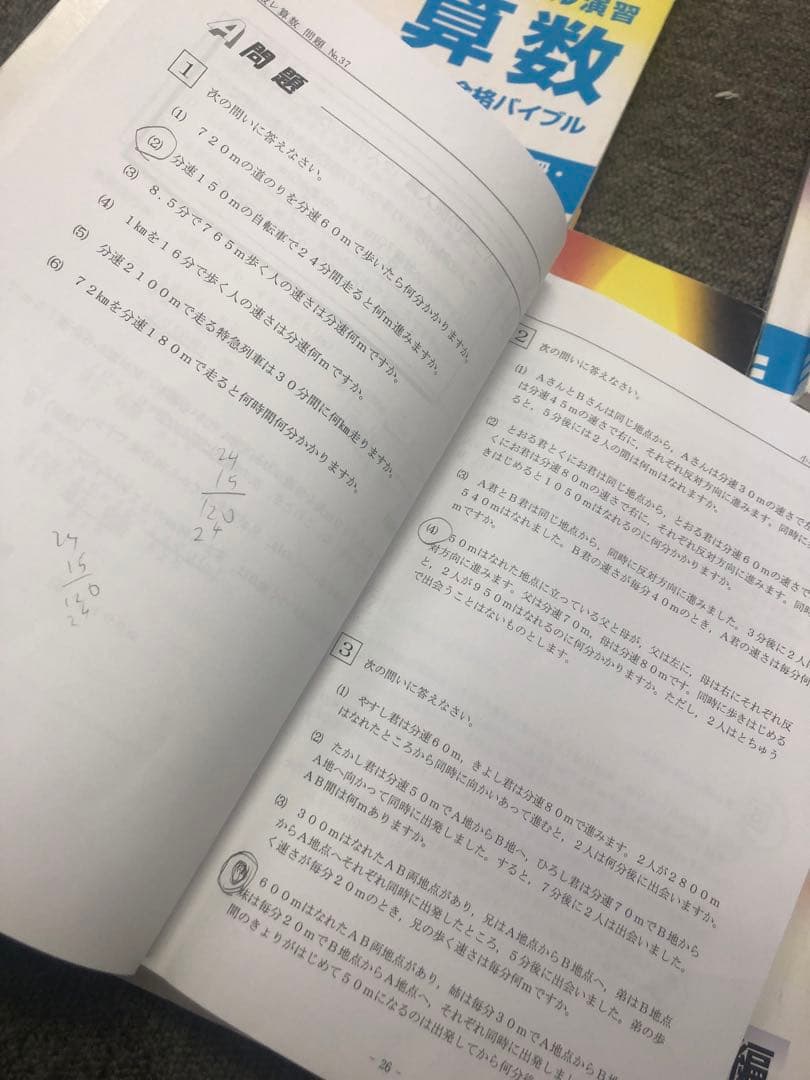 算数 問題 №37
A問題
1 次の問いに答えなさい。
(1) 720mの道のりを分速60mで歩いたら何分かかりますか。
(2) 分速150mの自転車で24分間走ると何m進みますか。
(3) 8.5分で765m歩く人の速さは分速何mですか。
(4) 1㎞を16分で歩く人の速さは分速何mですか。
(5) 分速2100mで走る特急列車は30分間に何㎞走りますか。
(6) 72㎞を分速180mで走ると何時間何分かかりますか。
24
15
120
24
24
15
120
24
演習
算数
合格バイブル
2 次の問いに答えなさい。
(1) AさんとBさんは同じ地点から,Aさんは分速30mの速さで左
は分速45mの速さで右に,それぞれ反対方向に進みます。同時に
ると,5分後には2人の間は何mはなれますか。
(2) とおる君とくにお君は同じ地点から,とおる君は分速60mの速さで
くにお君は分速80mの速さで右に,それぞれ反対方向に進みます。同
きはじめると1050mはなれるのに何分かかりますか。
(3) A君とB君は同じ地点から,同時に反対方向に進みました。3分後に2人は
540mはなれました。B君の速さが毎分40mのとき,A君の速さは毎分何
mですか。
(4) 50mはなれた地点に立っている父と母が,父は左に,母は右にそれぞれ反
対方向に進みます。父は分速70m,母は分速80mです。同時に歩きはじめる
と,2人が950mはなれるのに何分かかりますか。ただし,2人はとちゅう
で出会うことはないものとします。
3 次の問いに答えなさい。
(1) やすし君は分速60m,きよし君は分速80mで進みます。2人が2800m
はなれたところから同時に向かいあって進むと,2人は何分後に出会いますか。
(2) たかし君は分速50mでA地からB地へ,ひろし君は分速70mでB地から
A地へ向かって同時に出発しました。すると,7分後に2人は出会いました。
AB間は何mありますか。
(3) 300mはなれたAB両地点があり,兄はA地点からB地点へ,弟はB地点
からA地点へそれぞれ同時に出発したところ,5分後に出会いました。弟の歩
く速さが毎分20mのとき,兄の歩く速さは毎分何mですか。
600mはなれたAB両地点があり,姉は毎分30mでA地点からB地
妹は毎分20mでB地点からA地点へ,それぞれ同時に出発しまし
間のきょりがはじめて50mになるのは出発してから何分後
- 26 -
編